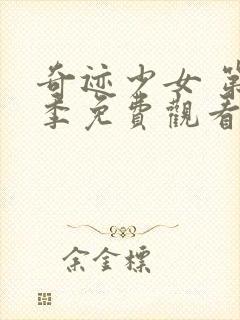 奇迹少女 第
季免費觀看
余金標